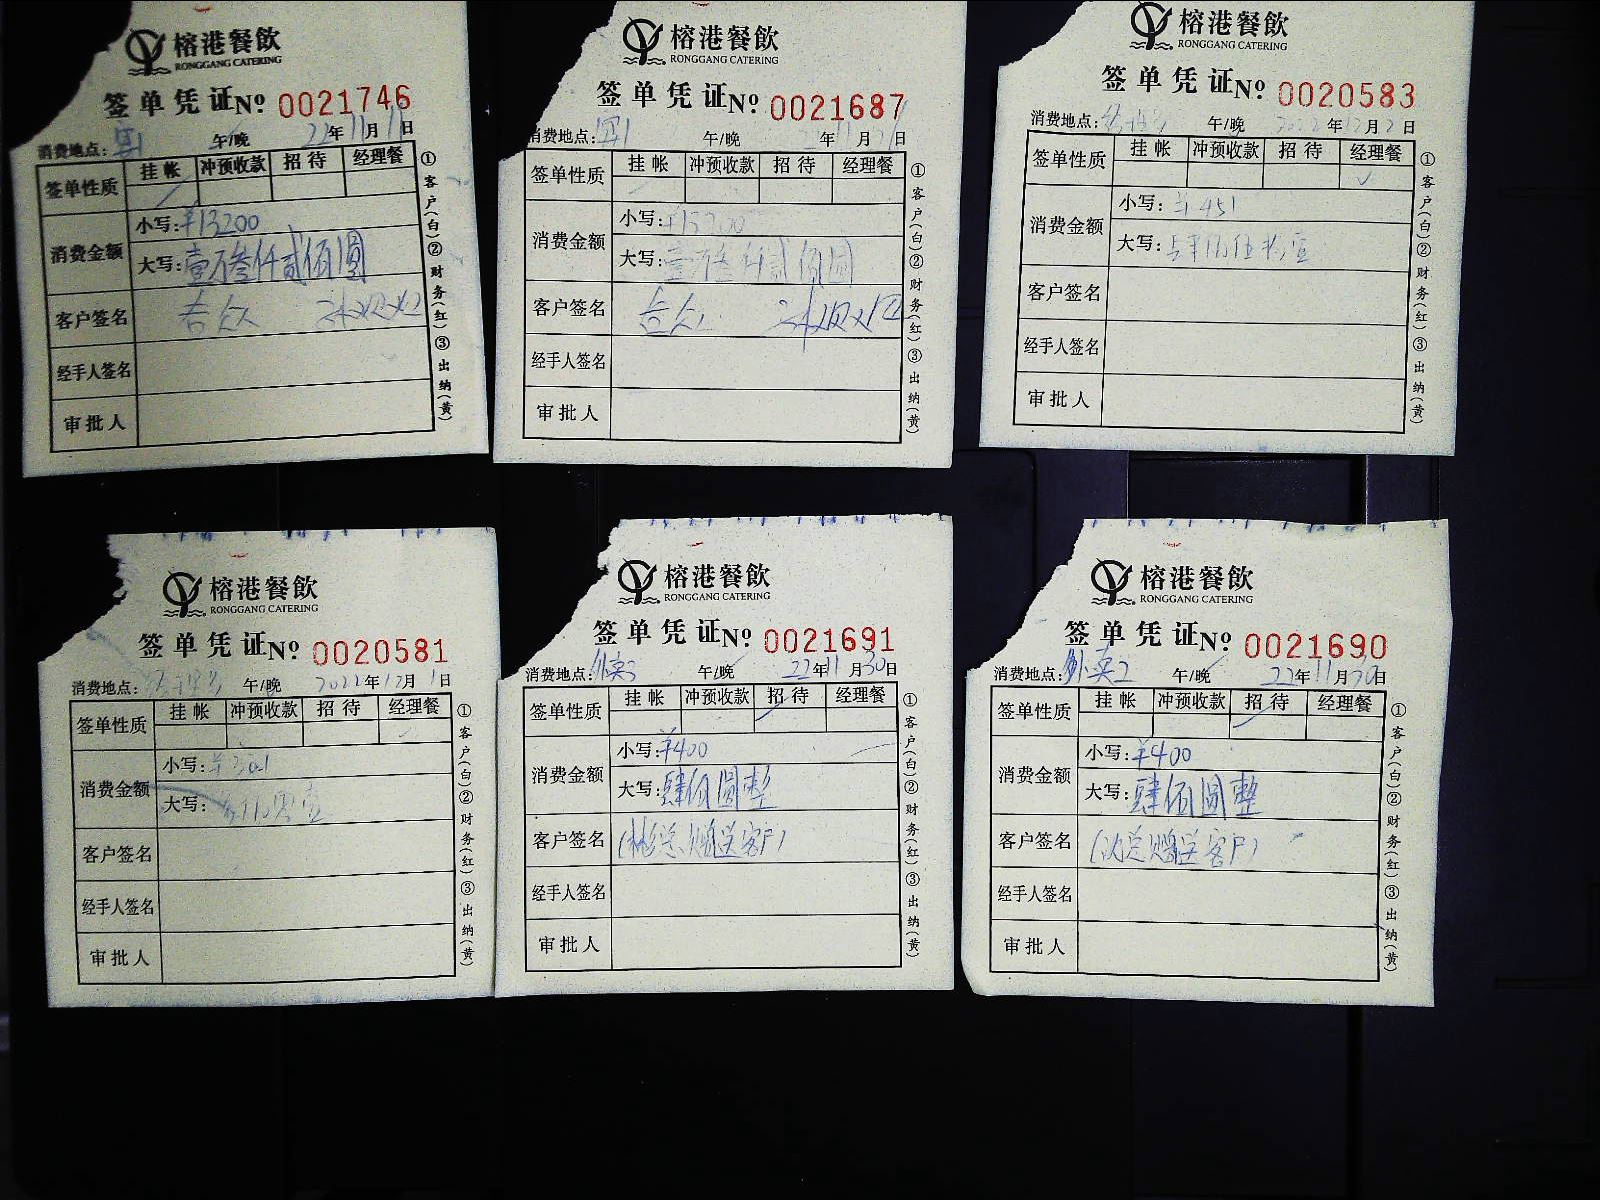 榕港餐飲
RONGGANG CATERING
签单凭证 Nº 0021746
消费地点： 午/晚 22年11月11日
签单性质 挂帐 冲预收款 招待 经理餐
消费金额 小写：¥13200
大写：壹万叁仟贰佰圆
客户签名 合众
经手人签名
审批人
①客户(白)②财务(红)③出纳(黄)
榕港餐飲
RONGGANG CATERING
签单凭证 Nº 0021687
消费地点： 午/晚 年11月日
签单性质 挂帐 冲预收款 招待 经理餐
消费金额 小写：¥13200
大写：壹万叁仟贰佰圆
客户签名 合众
经手人签名
审批人
①客户(白)②财务(红)③出纳(黄)
榕港餐飲
RONGGANG CATERING
签单凭证 Nº 0020583
消费地点： 午/晚 2022年12月2日
签单性质 挂帐 冲预收款 招待 经理餐
消费金额 小写：¥451
大写：
客户签名
经手人签名
审批人
①客户(白)②财务(红)③出纳(黄)
榕港餐飲
RONGGANG CATERING
签单凭证 Nº 0020581
消费地点： 午/晚 2022年12月1日
签单性质 挂帐 冲预收款 招待 经理餐
消费金额 小写：
大写：
客户签名
经手人签名
审批人
①客户(白)②财务(红)③出纳(黄)
榕港餐飲
RONGGANG CATERING
签单凭证 Nº 0021691
消费地点：外卖3 午/晚 22年11月30日
签单性质 挂帐 冲预收款 招待 经理餐
消费金额 小写：¥400
大写：肆佰圆整
客户签名 (彬总赠送客户)
经手人签名
审批人
①客户(白)②财务(红)③出纳(黄)
榕港餐飲
RONGGANG CATERING
签单凭证 Nº 0021690
消费地点：外卖2 午/晚 22年11月30日
签单性质 挂帐 冲预收款 招待 经理餐
消费金额 小写：¥400
大写：肆佰圆整
客户签名 赠送客户)
经手人签名
审批人
①客户(白)②财务(红)③出纳(黄)